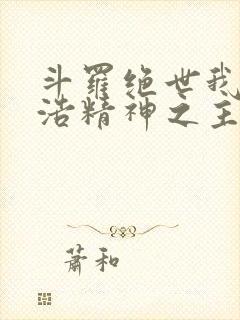 斗羅绝世我
浩精神之主
萧和